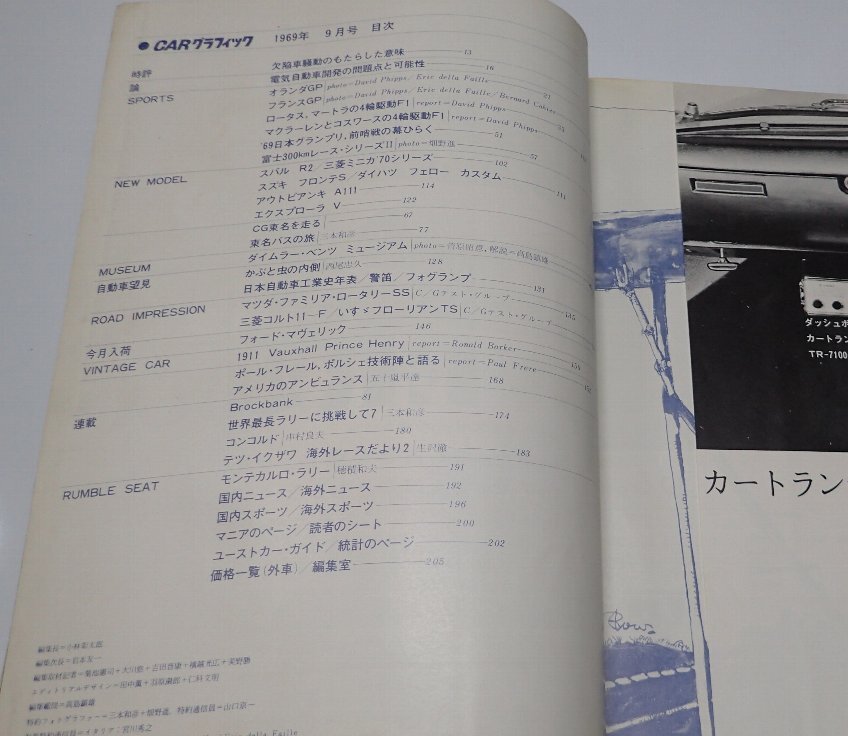 ● CARグラフィック 1969年 9月号 目次
時評 欠陥車騒動のもたらした意味 13
論 電気自動車開発の問題点と可能性 16
SPORTS オランダGP photo=David Phipps/Eric della Faille 21
フランスGP photo=David Phipps/Eric della Faille/Bernard Cahier
ロータス，マートラの4輪駆動F1 report=David Phipps
マクラーレンとコスワースの4輪駆動F1 report=David Phipps
'69日本グランプリ，前哨戦の幕ひらく 51
富士300kmレース・シリーズII photo=畑野進 57
NEW MODEL スバル R2／三菱ミニカ'70シリーズ 102
スズキ フロンテS／ダイハツ フェロー カスタム 111
アウトビアンキ A111 114
エクスプローラ V 122
CG東名を走る 67
東名バスの旅 三本和彦 77
MUSEUM ダイムラー・ベンツ ミュージアム photo=菅原
自動車望見 かぶと虫の内側 西尾忠久 128
日本自動車工業史年表／警笛／フォグランプ 131
ROAD IMPRESSION マツダ・ファミリア・ロータリーSS C/Gテスト・グループ 135
三菱コルト11-F／いすゞフローリアンTS C/Gテスト・グループ
今月入荷 フォード・マヴェリック 146
VINTAGE CAR 1911 Vauxhall Prince Henry report=Ronald Barker
ポール・フレール，ポルシェ技術陣と語る report=Paul Frere
アメリカのアンビュランス 五十嵐平達 168
Brockbank 81
連載 世界最長ラリーに挑戦して7 三本和彦 174
コンコルド 中村良夫 180
テツ・イクザワ 海外レースだより2 生沢徹 183
モンテカルロ・ラリー 穂積和夫 191
RUMBLE SEAT 国内ニュース／海外ニュース 192
国内スポーツ／海外スポーツ 196
マニアのページ／読者のシート 200
ユーストカー・ガイド／統計のページ 202
価格一覧（外車）／編集室 205
編集長=小林彰太郎
編集次長=岩本友一
エディトリアルデザイン=田中薫+
編集顧問=高島鎮雄
特約フォトグラファー=三本和彦+畑野進，特約通信員=山口京一
イタリア：宮川秀之
della Faille
ダッシュボ
カートラン
TR-7100
カートラン